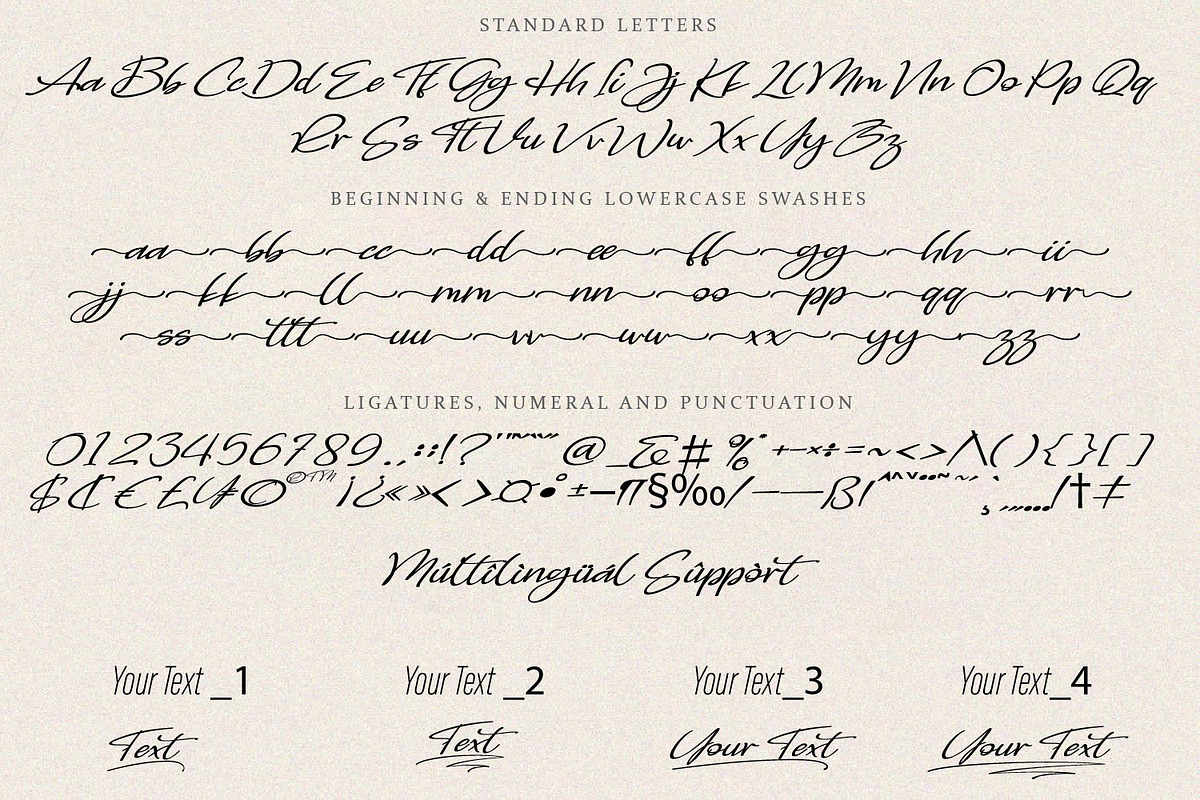 STANDARD LETTERS
Aa Bb Cc Dd Ee Ff Gg Hh Ii Jj Kk Ll Mm Nn Oo Pp Qq
Rr Ss Tt Uu Vv Ww Xx Yy Zz
BEGINNING & ENDING LOWERCASE SWASHES
aa bb cc dd ee ff gg hh ii
jj kk ll mm nn oo pp qq rr
ss ttt uu vv ww xx yy zz
LIGATURES, NUMERAL AND PUNCTUATION
0123456789.,:;!? @_&#% * +-×÷=~<>/\(){}[]
$₵€£¥©©™ ¡¿«»‹›¤•°±−¶§‰/–—ß/ …/†‡
Múltîlìngüál Sûppòrt
Your Text _1 Your Text _2 Your Text_3 Your Text_4
Text Text Your Text Your Text